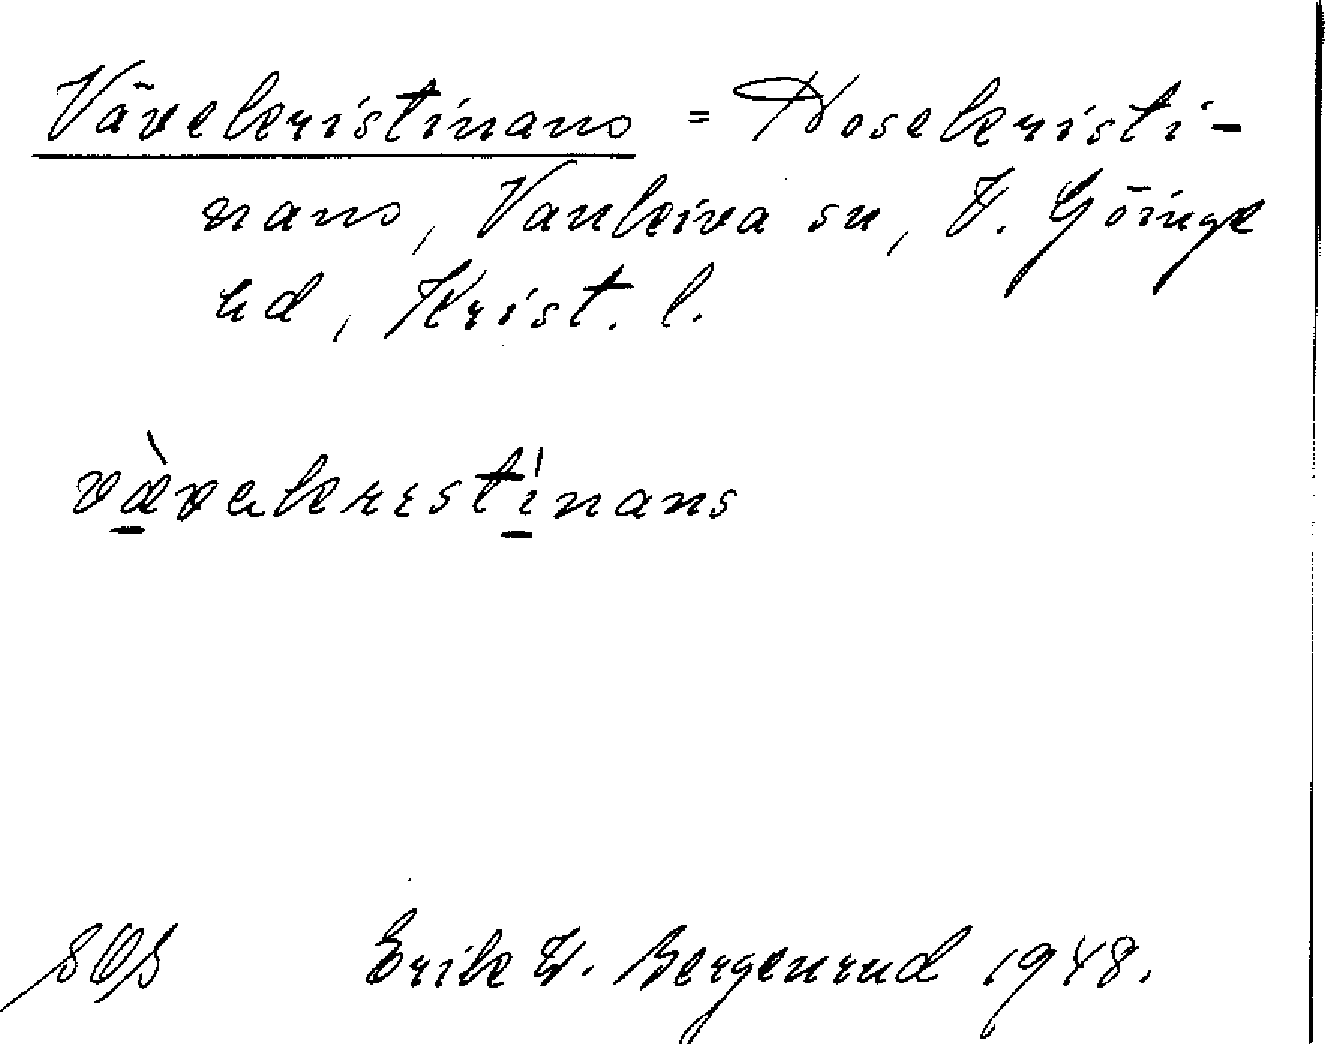 Vävekristinans = Nosekristi-
nans, Vankiva sn, V. Göinge
hd, Krist. l.
vævekrestinans
SOS Erik W. Bergenrud 1948.